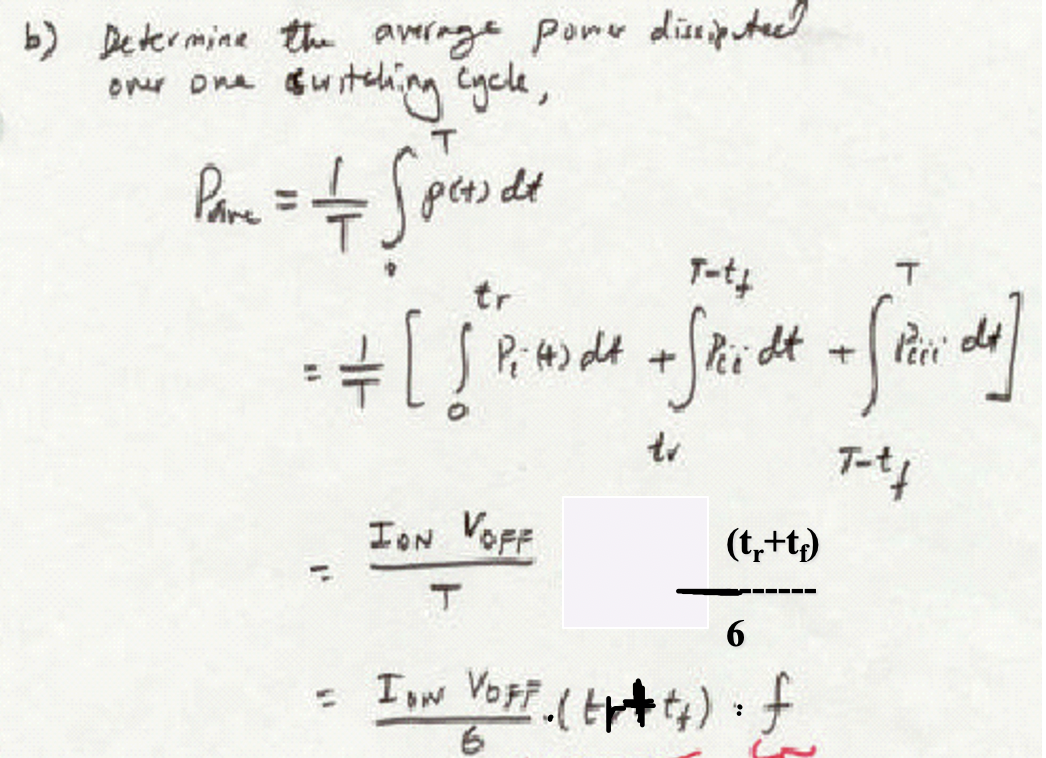 b) Determine the average power dissipated
over one switching cycle,
Pave = 1/T ∫₀ᵀ p(t) dt
= 1/T [ ∫₀^tr Pi(t) dt + ∫tr^T-tf Pii dt + ∫T-tf^T Piii dt ]
= ION VOFF / T (tr+tf) / 6
= ION VOFF / 6 . (tr + tf) : f